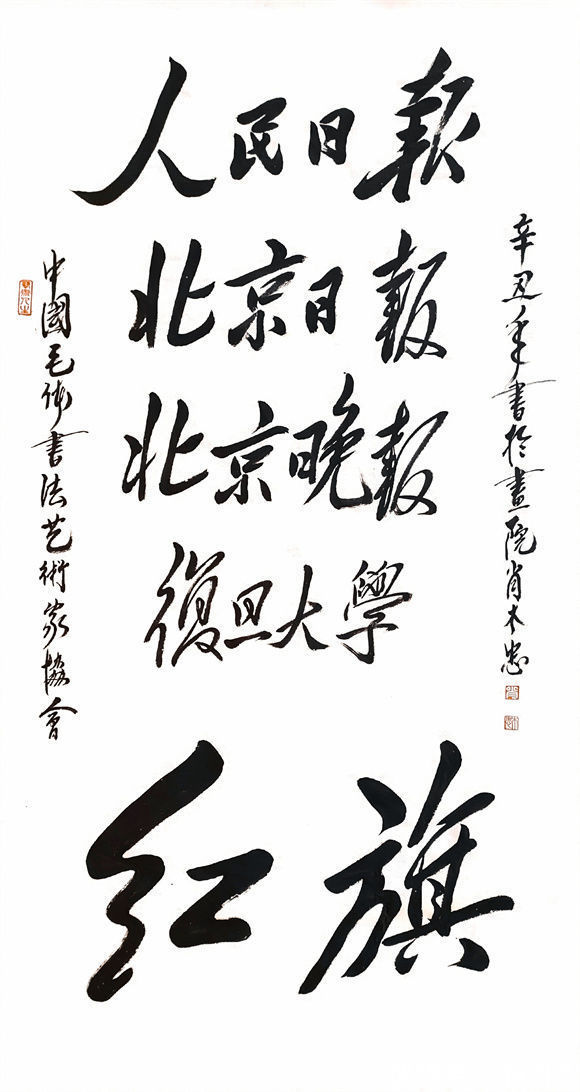 人民日報
北京日報
北京晚報
復旦大學
红旗
辛丑年書於畫院肖木忠
中國毛体書法艺術家協會